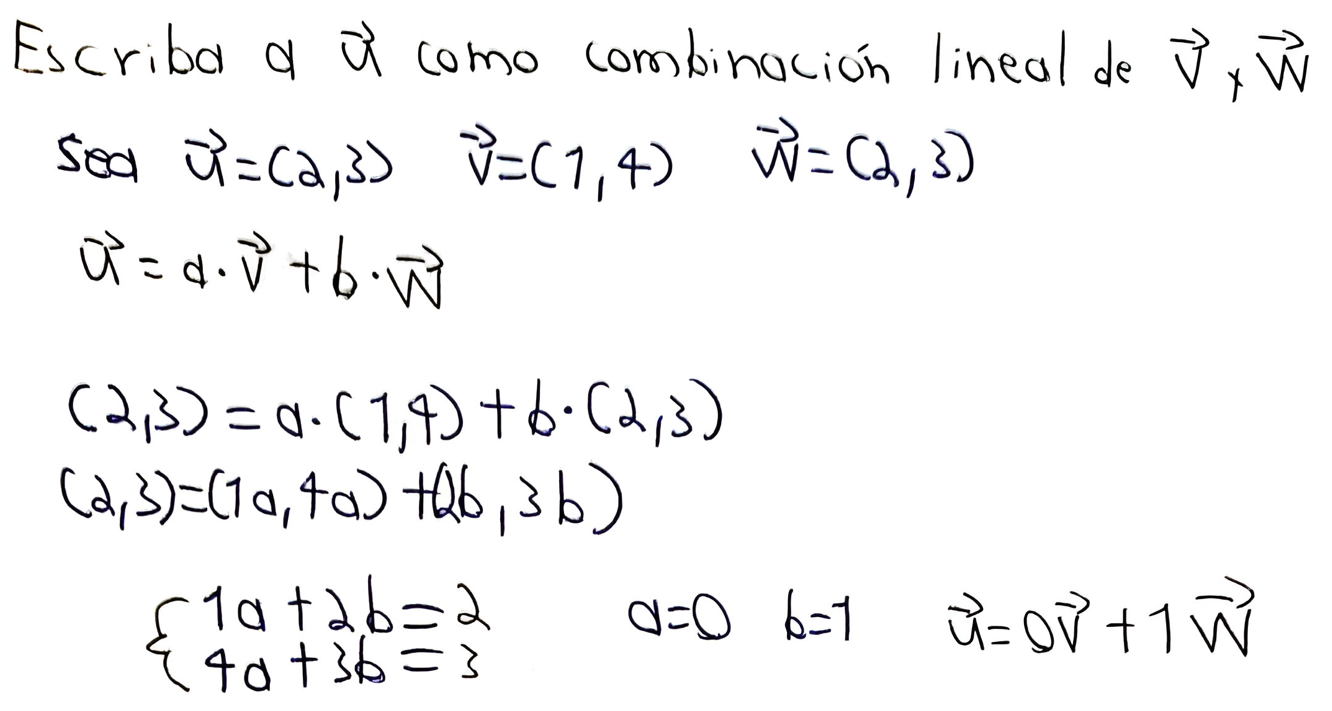 Escriba a u⃗ como combinación lineal de v⃗ y w⃗
sea u⃗=(2,3) v⃗=(1,4) w⃗=(2,3)
u⃗=a·v⃗+b·w⃗
(2,3)=a·(1,4)+b·(2,3)
(2,3)=(1a,4a)+(2b,3b)
{1a+2b=2 a=0 b=1 u⃗=0v⃗+1w⃗
4a+3b=3